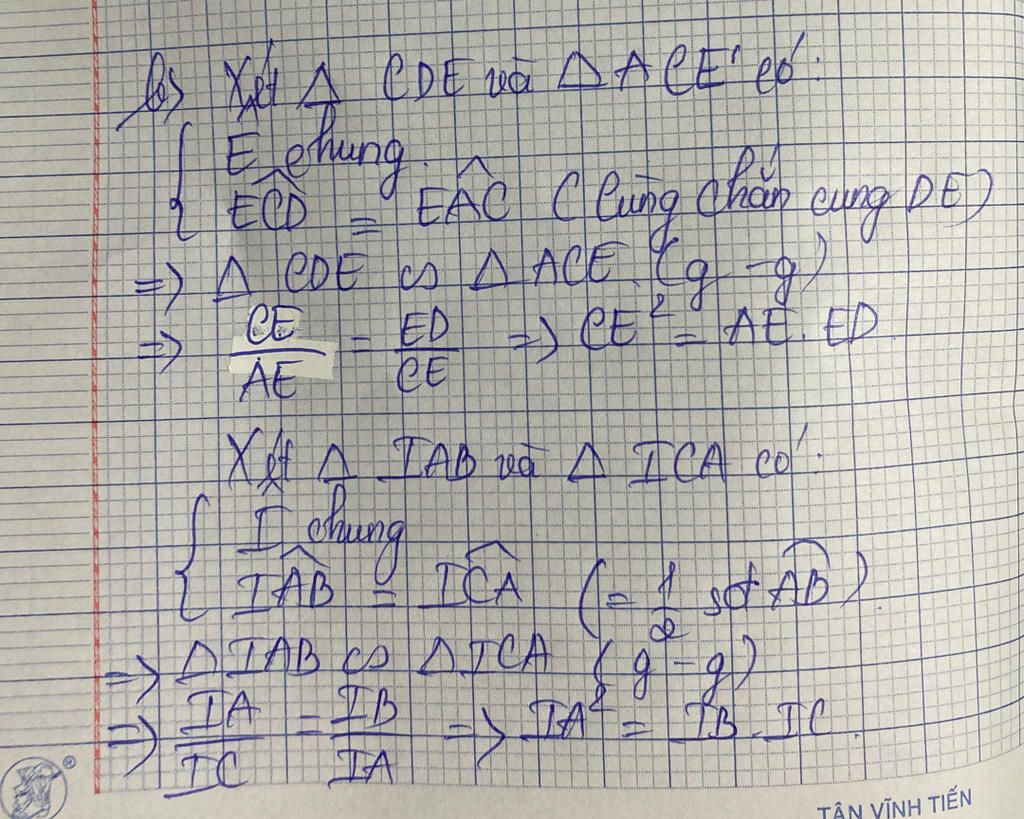 b) Xét Δ CDE và Δ ACE có:
E chung.
ECD = EAC (Cùng chắn cung DE)
=> Δ CDE ∽ Δ ACE (g-g)
=> CE/AE = ED/CE => CE² = AE. ED
Xét Δ IAB và Δ ICA có:
I chung
IAB = ICA (= 1/2 sđ AB).
=> Δ IAB ∽ Δ ICA (g-g)
=> IA/IC = IB/IA => IA² = IB. IC.
TÂN VĨNH TIẾN